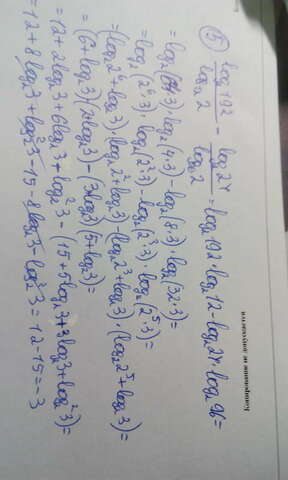 Копирование и запрещается
⑤ log₂192/log₁₂2 - log₂24/log₉₆2 = log₂192·log₂12-log₂24·log₂96=
=log₂(64·3)·log₂(4·3)-log₂(8·3)·log₂(32·3)=
=log₂(2⁶·3)·log₂(2²·3)-log₂(2³·3)·log₂(2⁵·3)=
=(log₂2⁶+log₂3)·log₂2²+log₂3)-(log₂2³+log₂3)·(log₂2⁵+log₂3)=
=(6+log₂3)(2+log₂3)-(3+log₂3)(5+log₂3)=
=12+2log₂3+6log₂3+log₂²3-(15+5log₂3+3log₂3+log₂²3)=
=12+8log₂3+log₂²3-15-8log₂3-log₂²3=12-15=-3